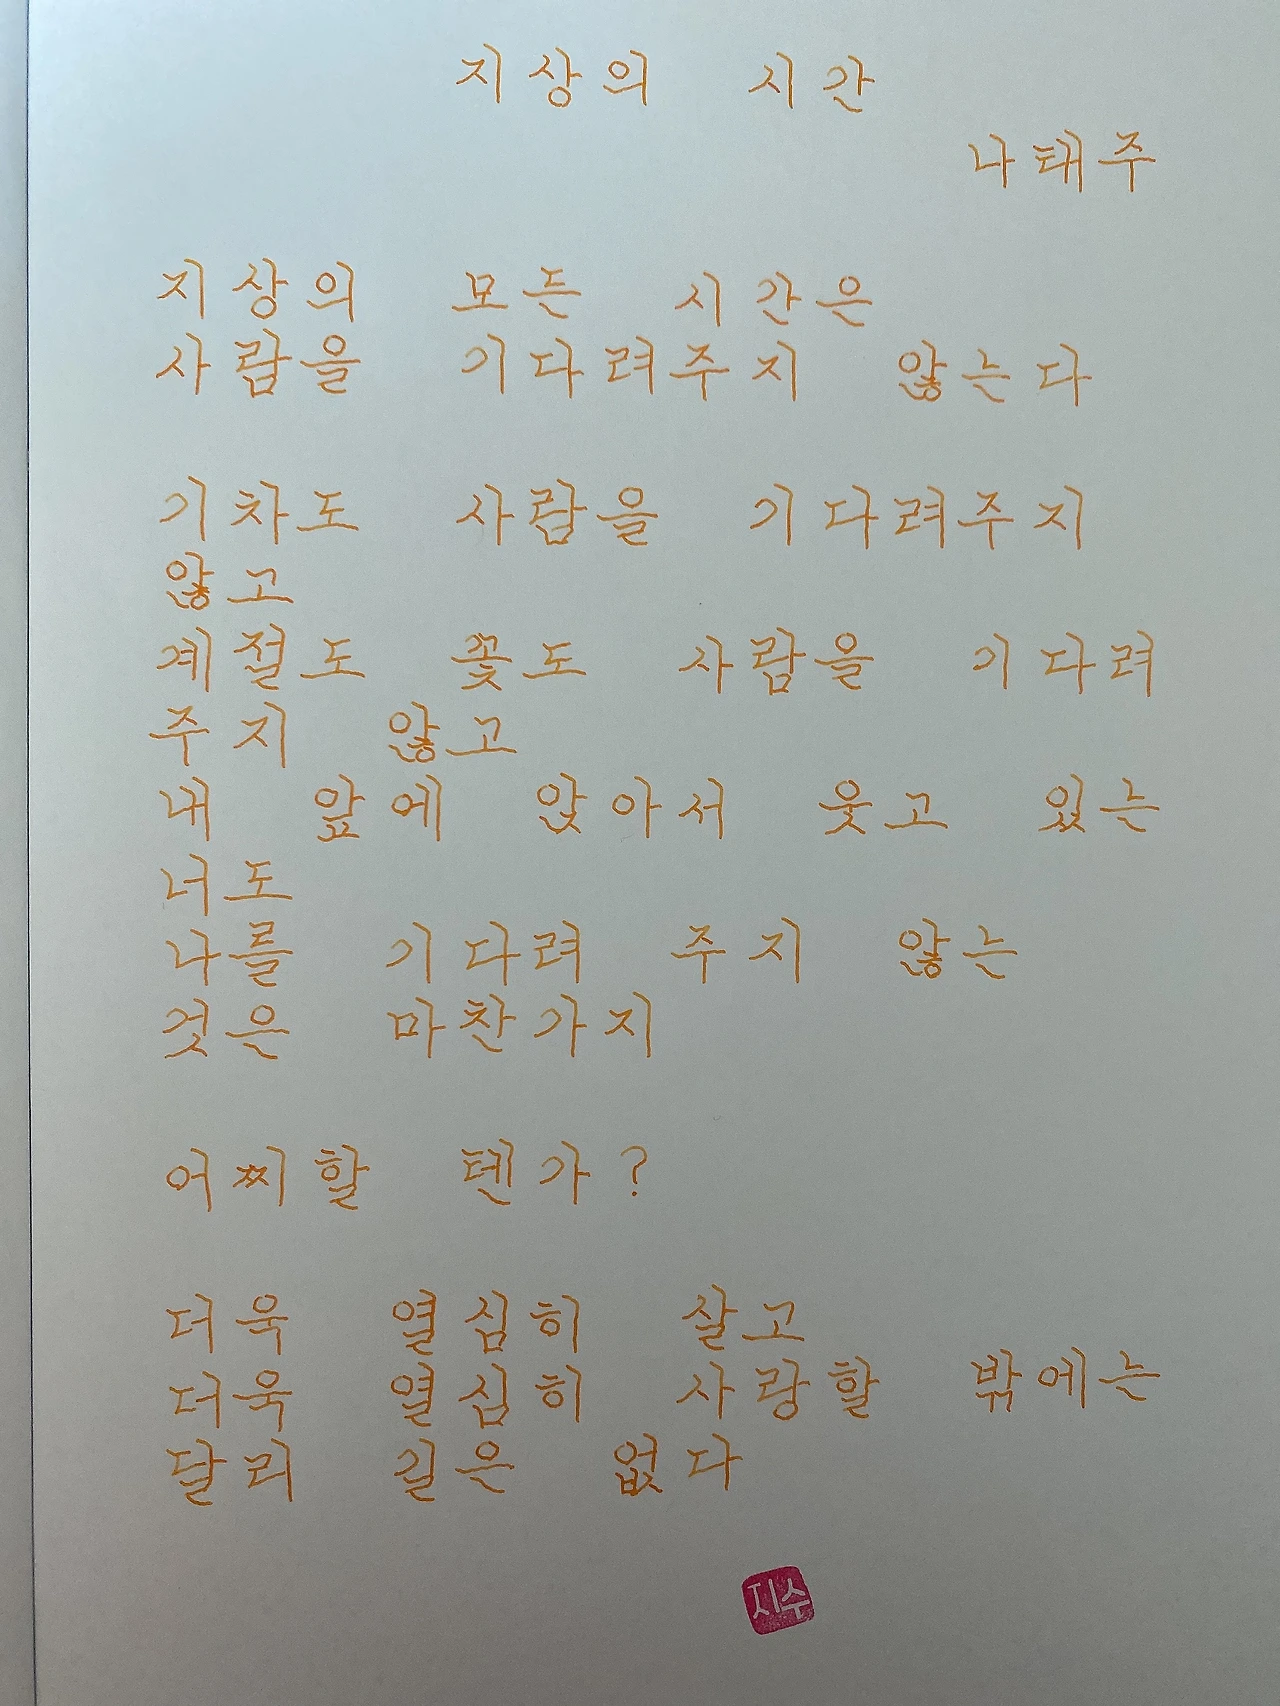 지상의 시간
나태주
지상의 모든 시간은
사람을 기다려주지 않는다
기차도 사람을 기다려주지
않고
계절도 꽃도 사람을 기다려
주지 않고
내 앞에 앉아서 웃고 있는
너도
나를 기다려 주지 않는
것은 마찬가지
어찌할 텐가?
더욱 열심히 살고
더욱 열심히 사랑할 밖에는
달리 길은 없다
지수